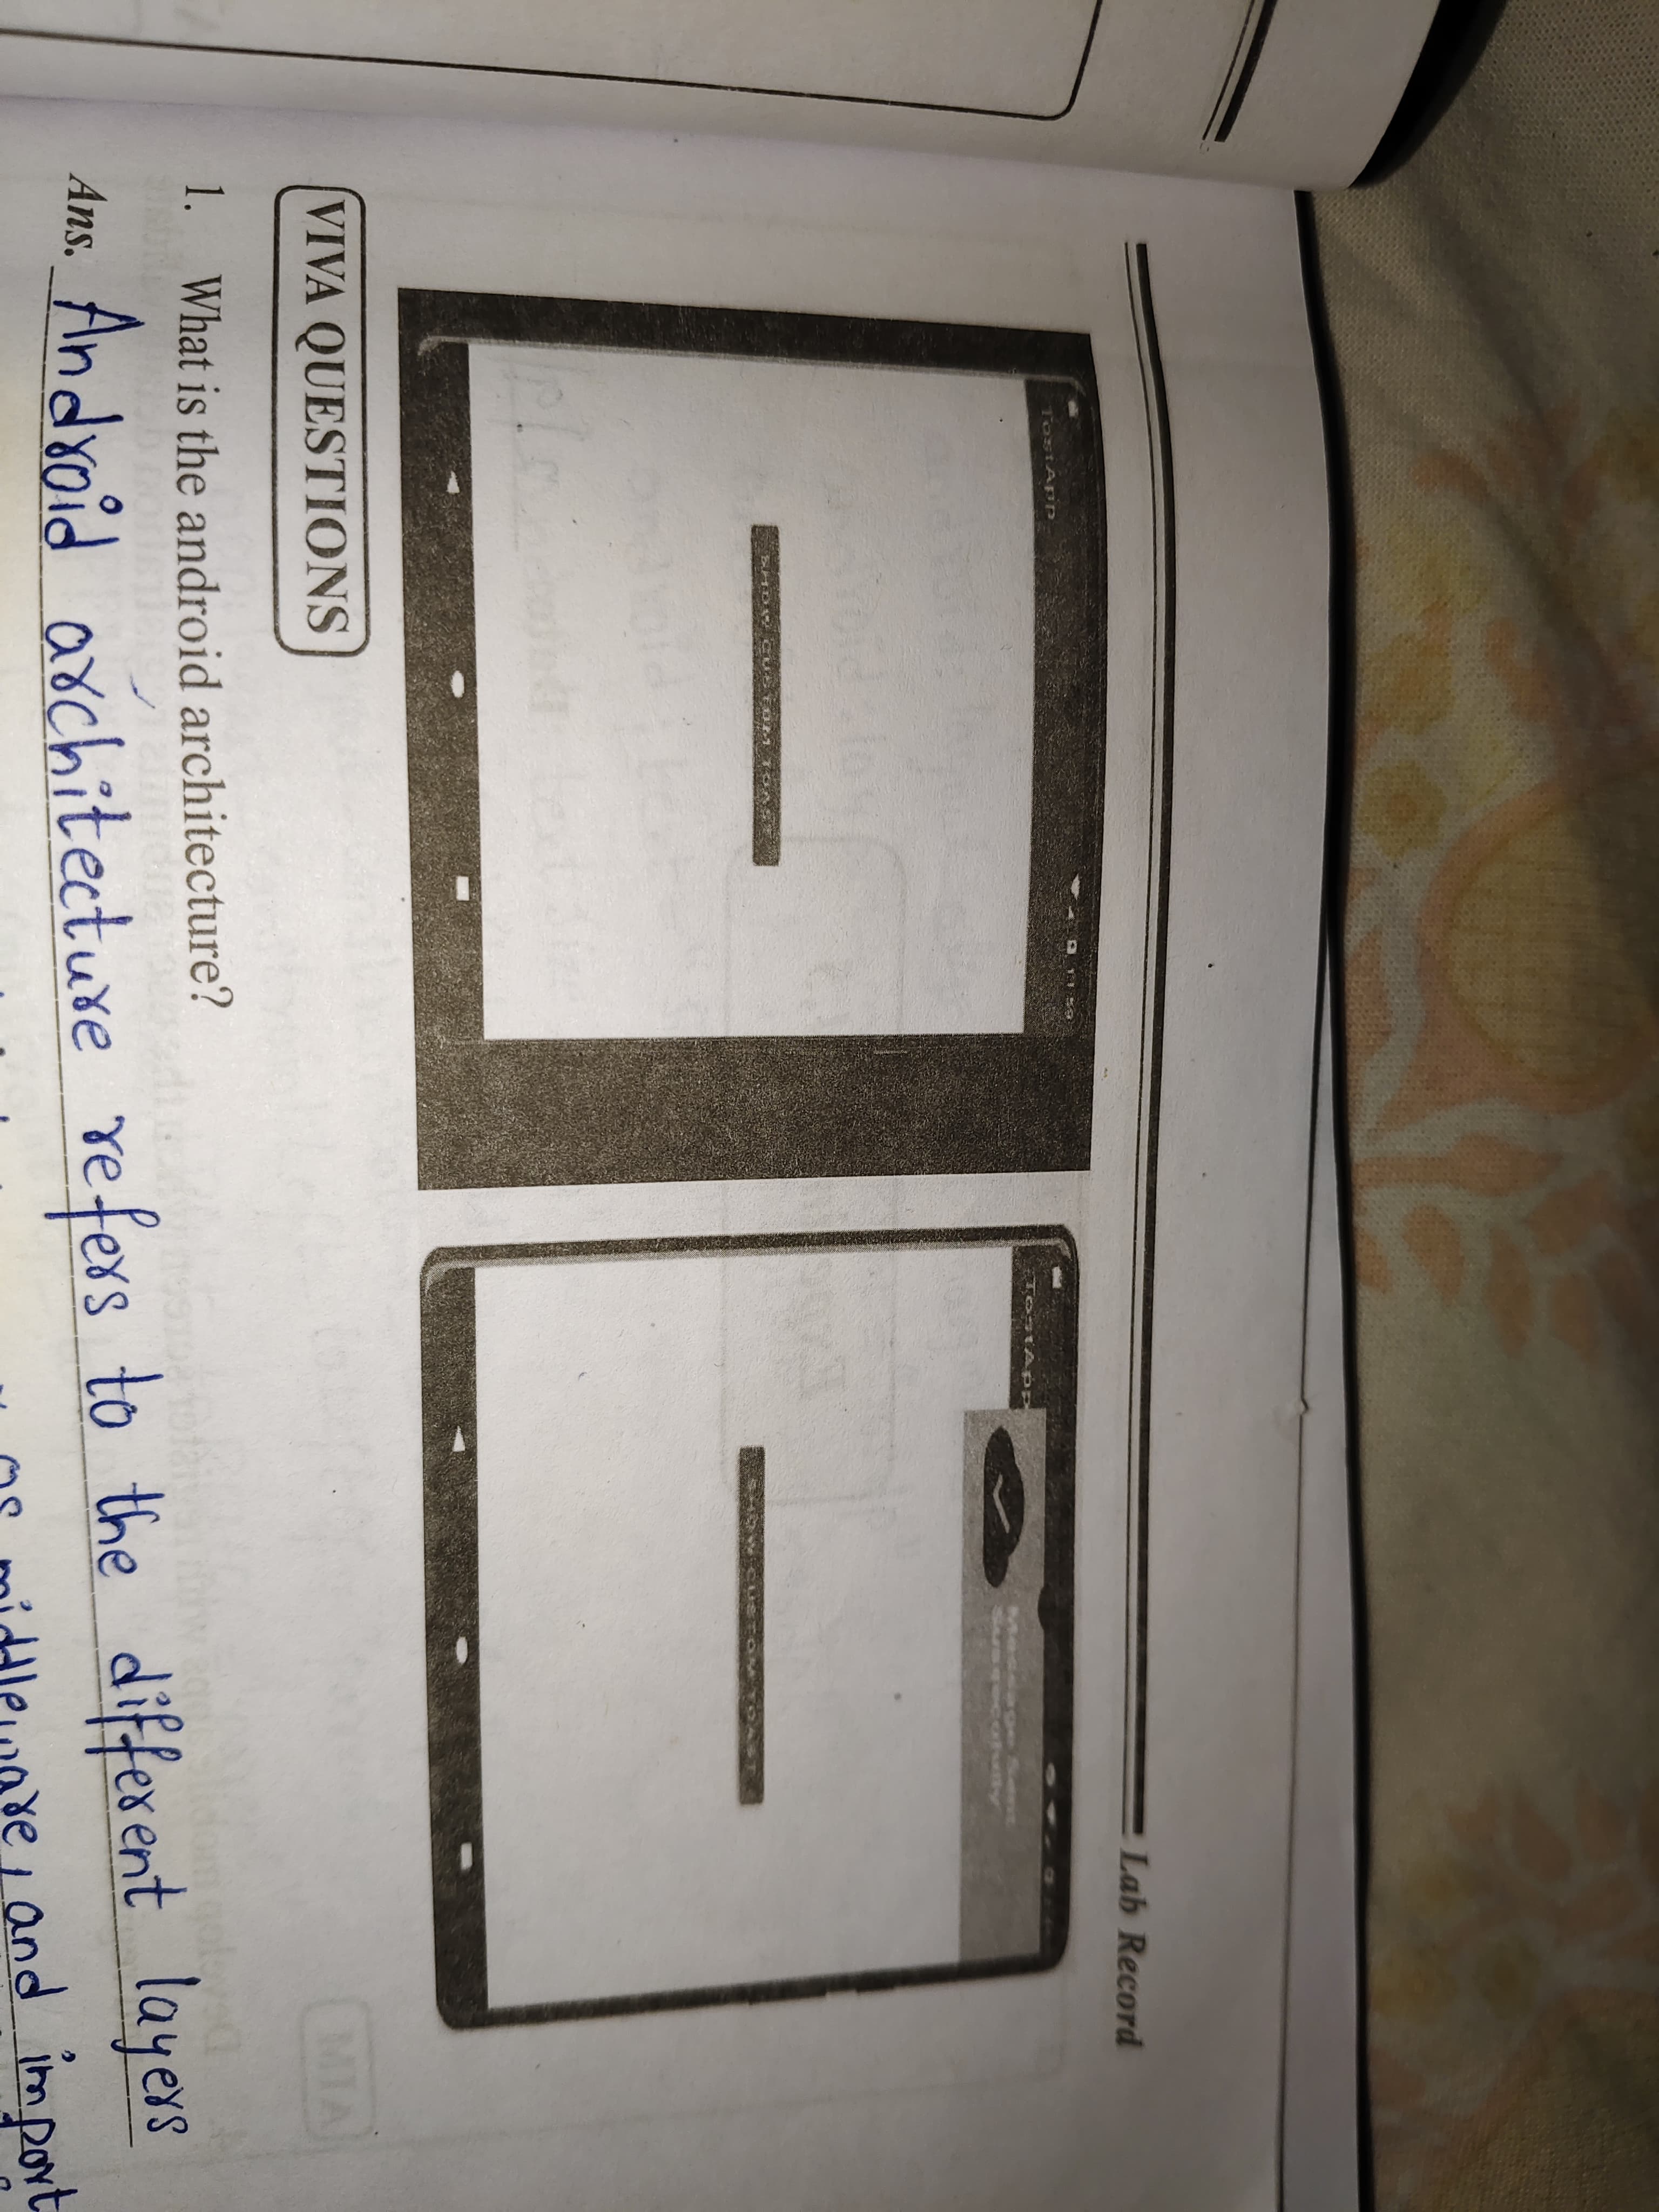 Lab Record
TostApp
11:59
SHOW CUSTOM TOAST
TostApp
Message Sent
Successfully
SHOW CUSTOM TOAST
VIVA QUESTIONS
1. What is the android architecture?
Ans. Android architecture refers to the different layers
as middleware, and import